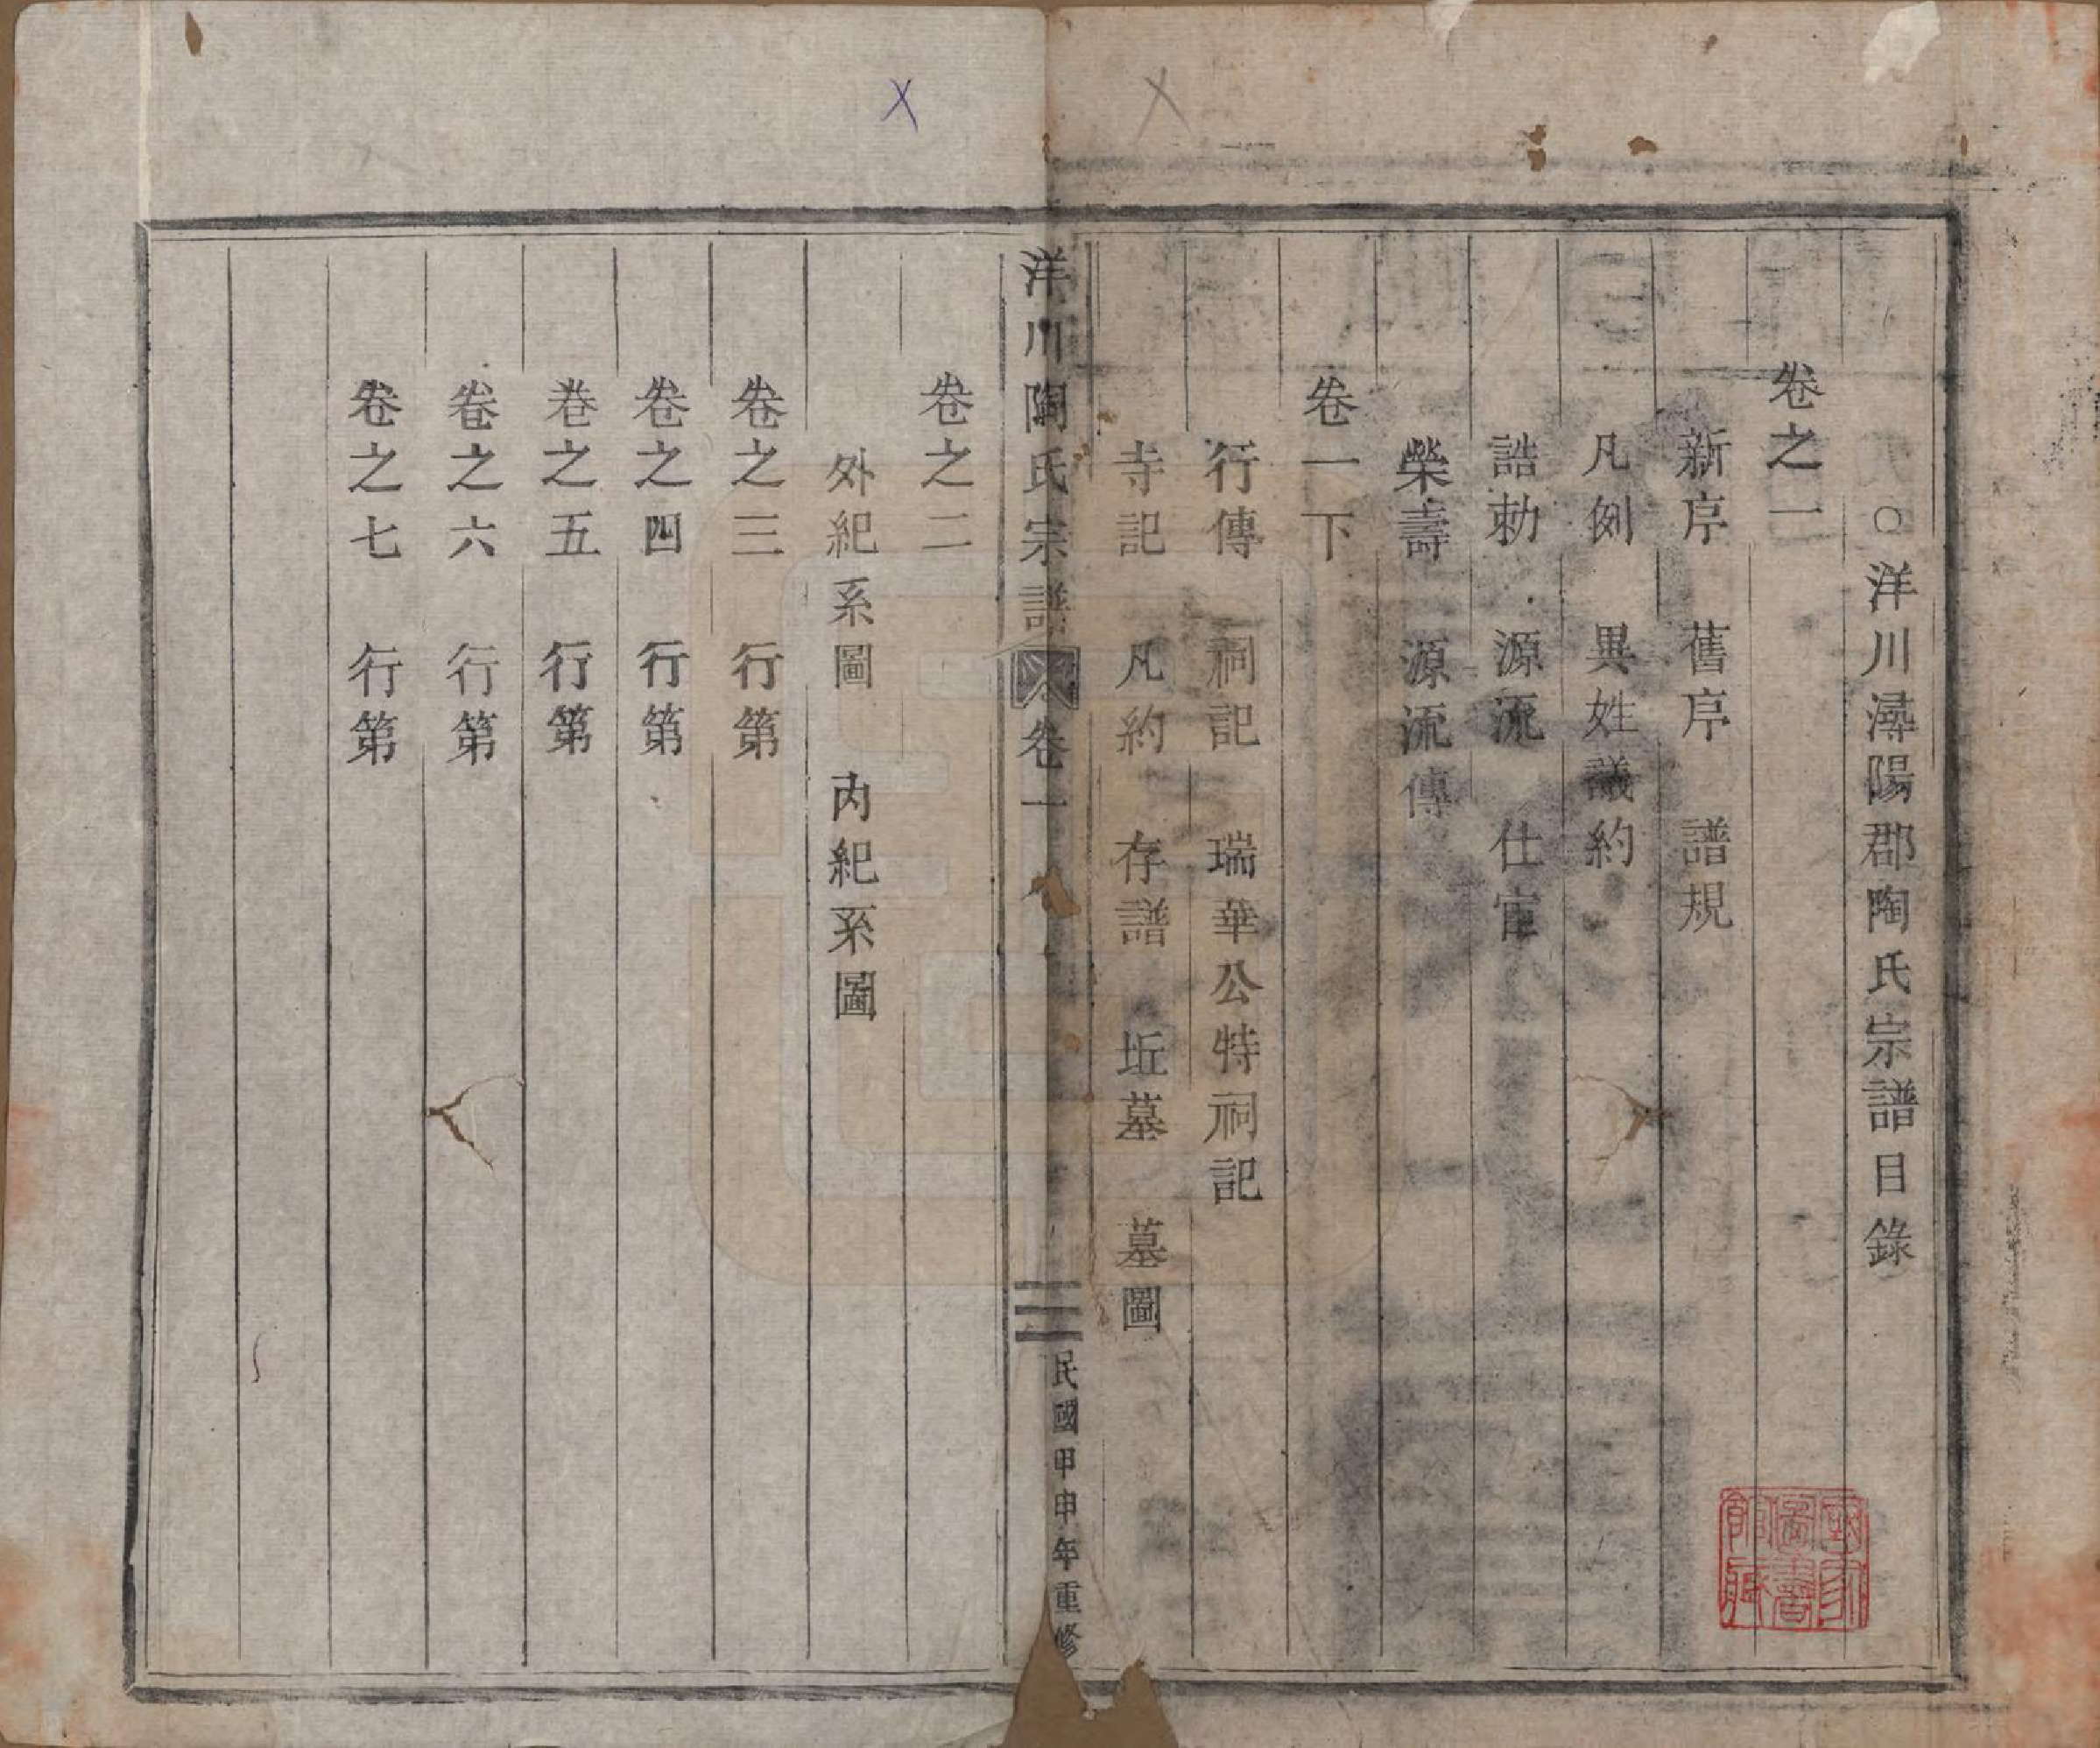 ○洋川潯陽郡陶氏宗譜目錄
卷之一
新序　舊序　譜規
凡例　異姓議約
誥勅　源流　仕宦
榮壽　源流傳
卷一下
行傳　祠記　瑞華公特祠記
寺記　凡約　存譜　坵墓　墓圖
洋川陶氏宗譜　卷一　民國甲申年重修
卷之二
外紀系圖　內紀系圖
卷之三　行第
卷之四　行第
卷之五　行第
卷之六　行第
卷之七　行第
國家圖書館藏